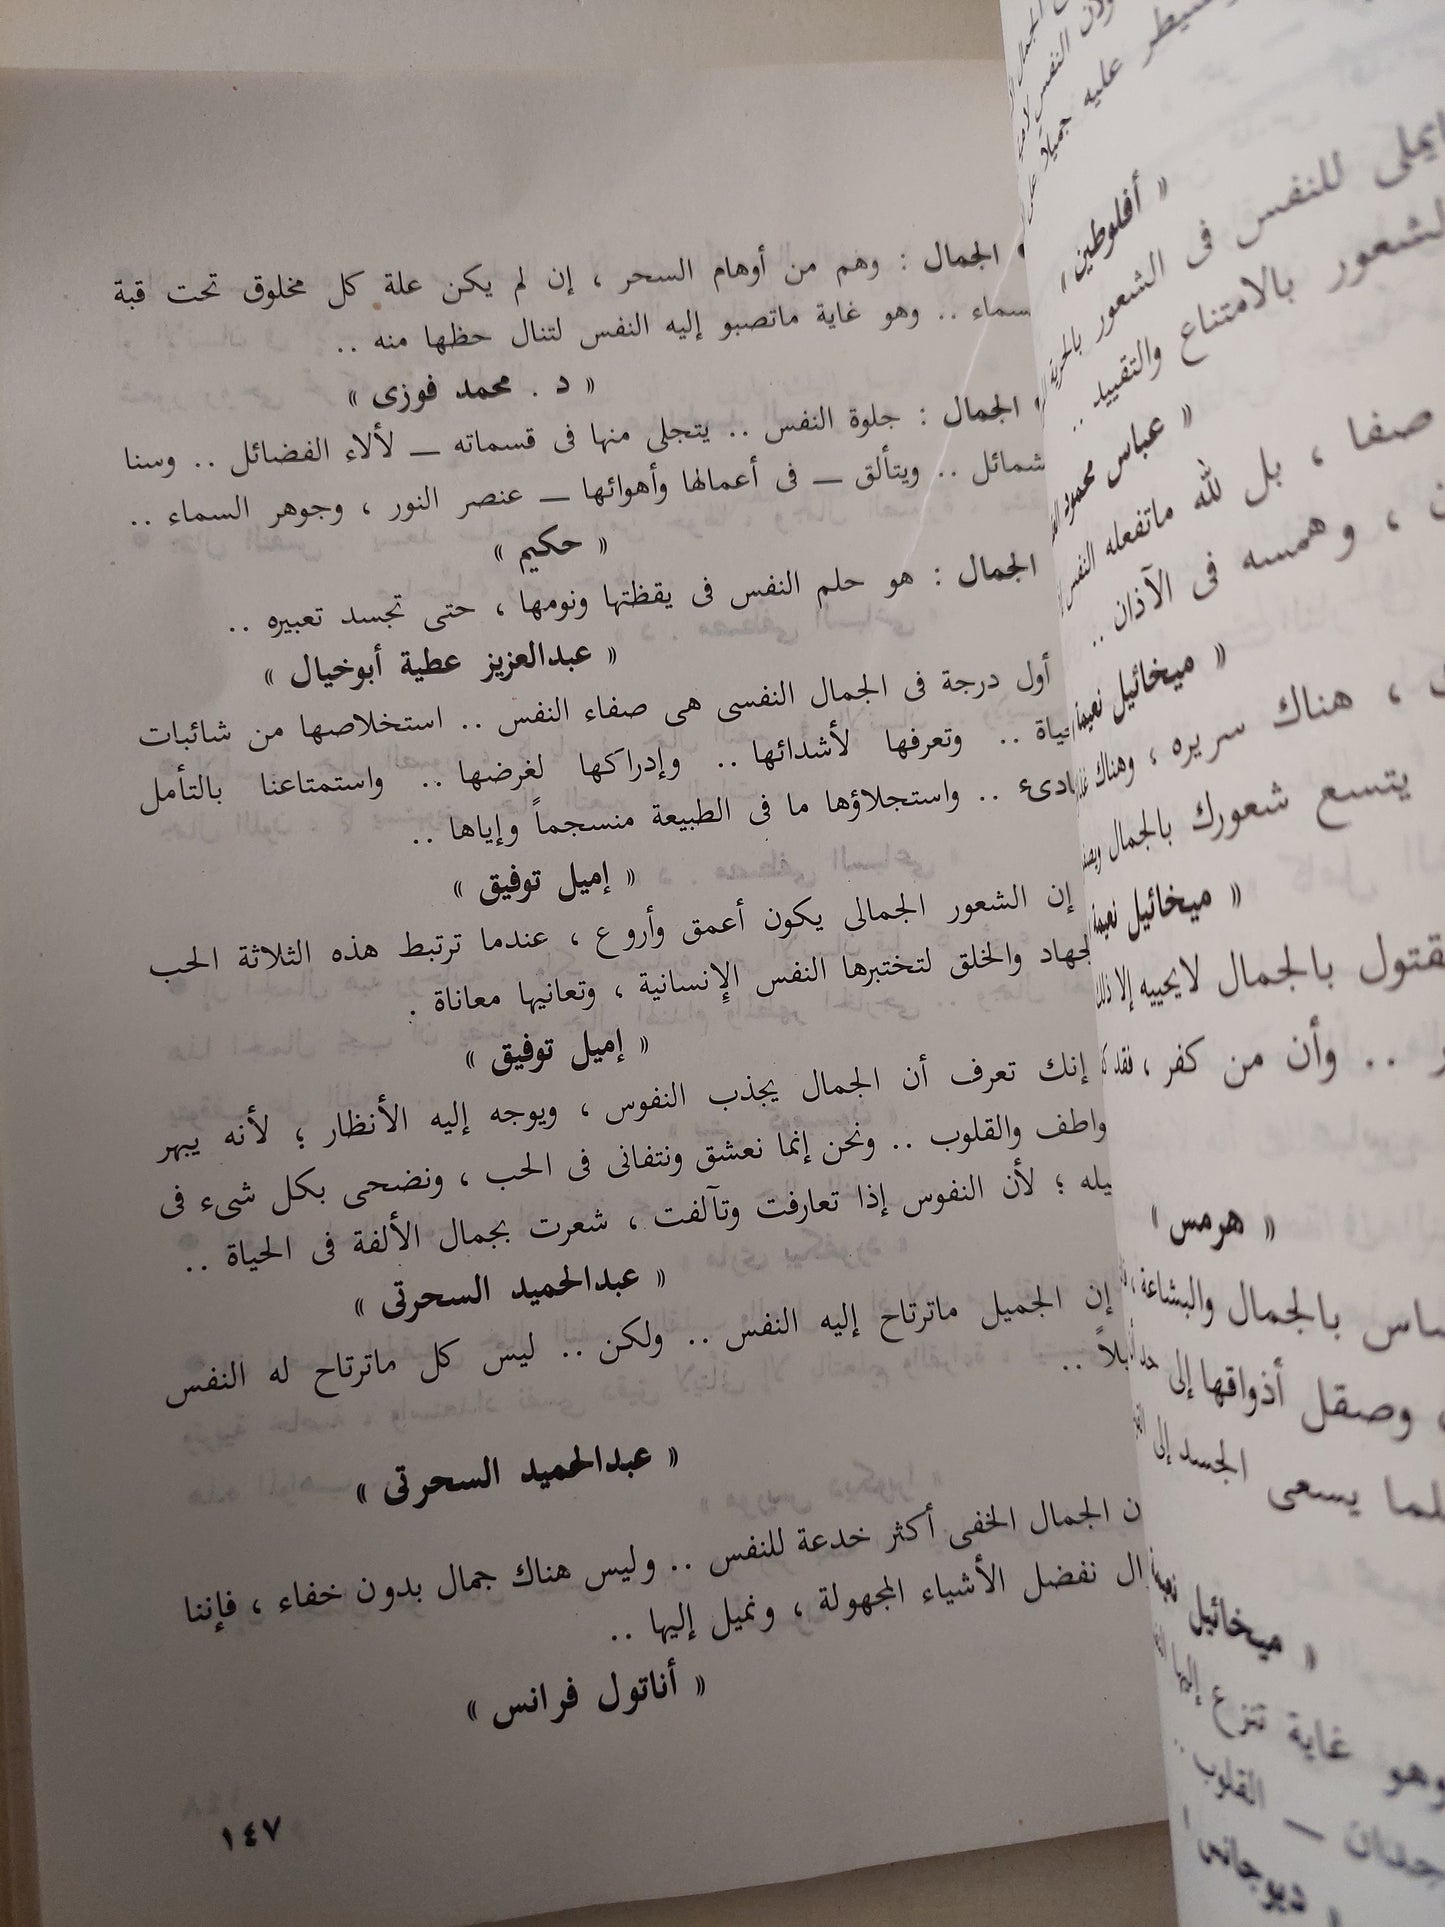 الجمال : وهم من أوهام السحر ، إن لم يكن علة كل مخلوق تحت قبة
سماء .. وهو غاية ماتصبو إليه النفس لتنال حظها منه ..
« د . محمد فوزى »
الجمال : جلوة النفس .. يتجلى منها فى قسماته ــ لألاء الفضائل .. وسنا
شمائل .. ويتألق ــ فى أعمالها وأهوائها ــ عنصر النور ، وجوهر السماء ..
« حكيم »
الجمال : هو حلم النفس فى يقظتها ونومها ، حتى تجسد تعبيره ..
« عبدالعزيز عطية أبوخيال »
أول درجة فى الجمال النفسى هى صفاء النفس .. استخلاصها من شائبات
ياة .. وتعرفها لأشدائها .. وإدراكها لغرضها .. واستمتاعنا بالتأمل
ادىء .. واستجلاؤها ما فى الطبيعة منسجماً وإياها ..
« إميل توفيق »
إن الشعور الجمالى يكون أعمق وأروع ، عندما ترتبط هذه الثلاثة الحب
لجهاد والخلق لتختبرها النفس الإنسانية ، وتعانيها معاناة .
« إميل توفيق »
إنك تعرف أن الجمال يجذب النفوس ، ويوجه إليه الأنظار ؛ لأنه يبهر
واطف والقلوب .. ونحن إنما نعشق ونتفانى فى الحب ، ونضحى بكل شىء فى
يله ؛ لأن النفوس إذا تعارفت وتآلفت ، شعرت بجمال الألفة فى الحياة ..
« عبدالحميد السحرتى »
إن الجميل ماترتاح إليه النفس .. ولكن .. ليس كل ماترتاح له النفس
يلاً ..
« عبدالحميد السحرتى »
ن الجمال الخفى أكثر خدعة للنفس .. وليس هناك جمال بدون خفاء ، فإننا
ال نفضل الأشياء المجهولة ، ونميل إليها ..
« أناتول فرانس »
١٤٧
يطر عليه جميلاً
« أفلوطين »
يملى للنفس فى الشعور بالحرية
لشعور بالامتناع والتقييد ..
« عباس محمود
صفا ، بل لله ماتفعله النفس
، وهمسه فى الآذان ..
« ميخائيل نعيمة
، هناك سريره ، وهناك
يتسع شعورك بالجمال
« ميخائيل نعيمة
قتول بالجمال لايحييه إلا ذلك
.. وأن من كفر ، فقد
« هرمس »
ساس بالجمال والبشاعة ،
وصقل أذواقها إلى حد
لما يسعى الجسد إلى
« ميخائيل
وهو غاية تنزع إليها
جدان ــ القلوب ..